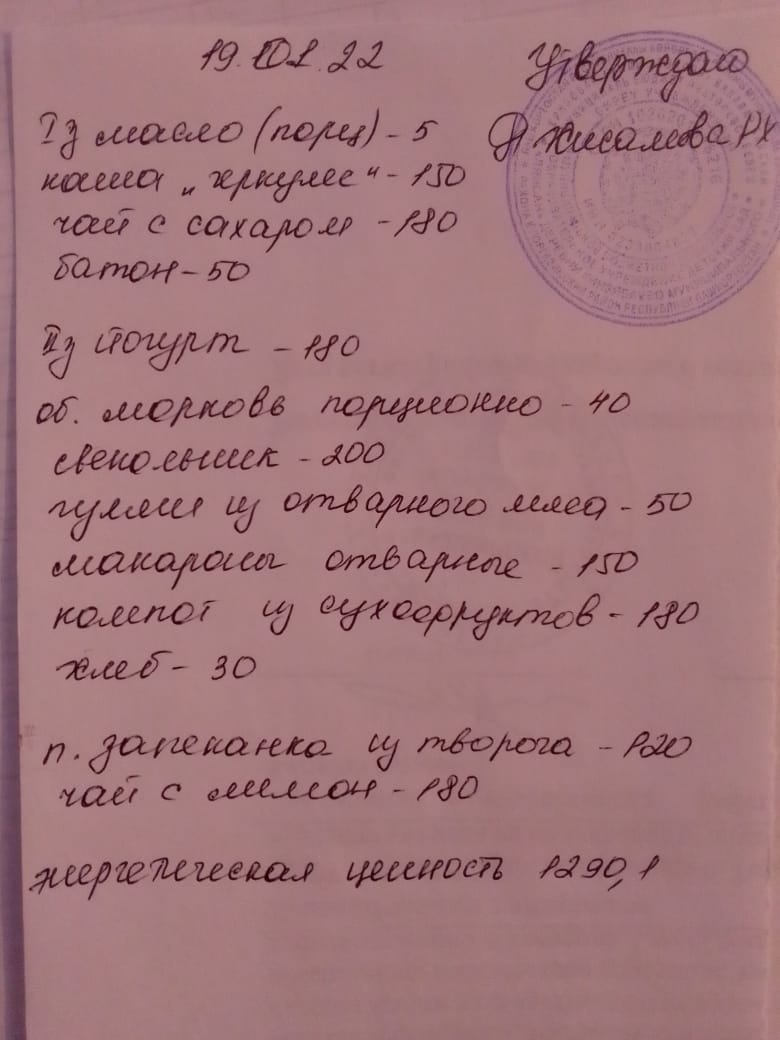 19.01.22
Утверждаю
Хисамова РХ
I з масло (порц) - 5
каша „ геркулес“ - 150
чай с сахаром - 180
батон - 50
II з йогурт - 180
об. морковь порционно - 40
свекольник - 200
гуляш из отварного мяса - 50
макароны отварные - 150
компот из сухофруктов - 180
хлеб - 30
п. запеканка из творога - 120
чай с лимон - 180
энергетическая ценность 1290,1